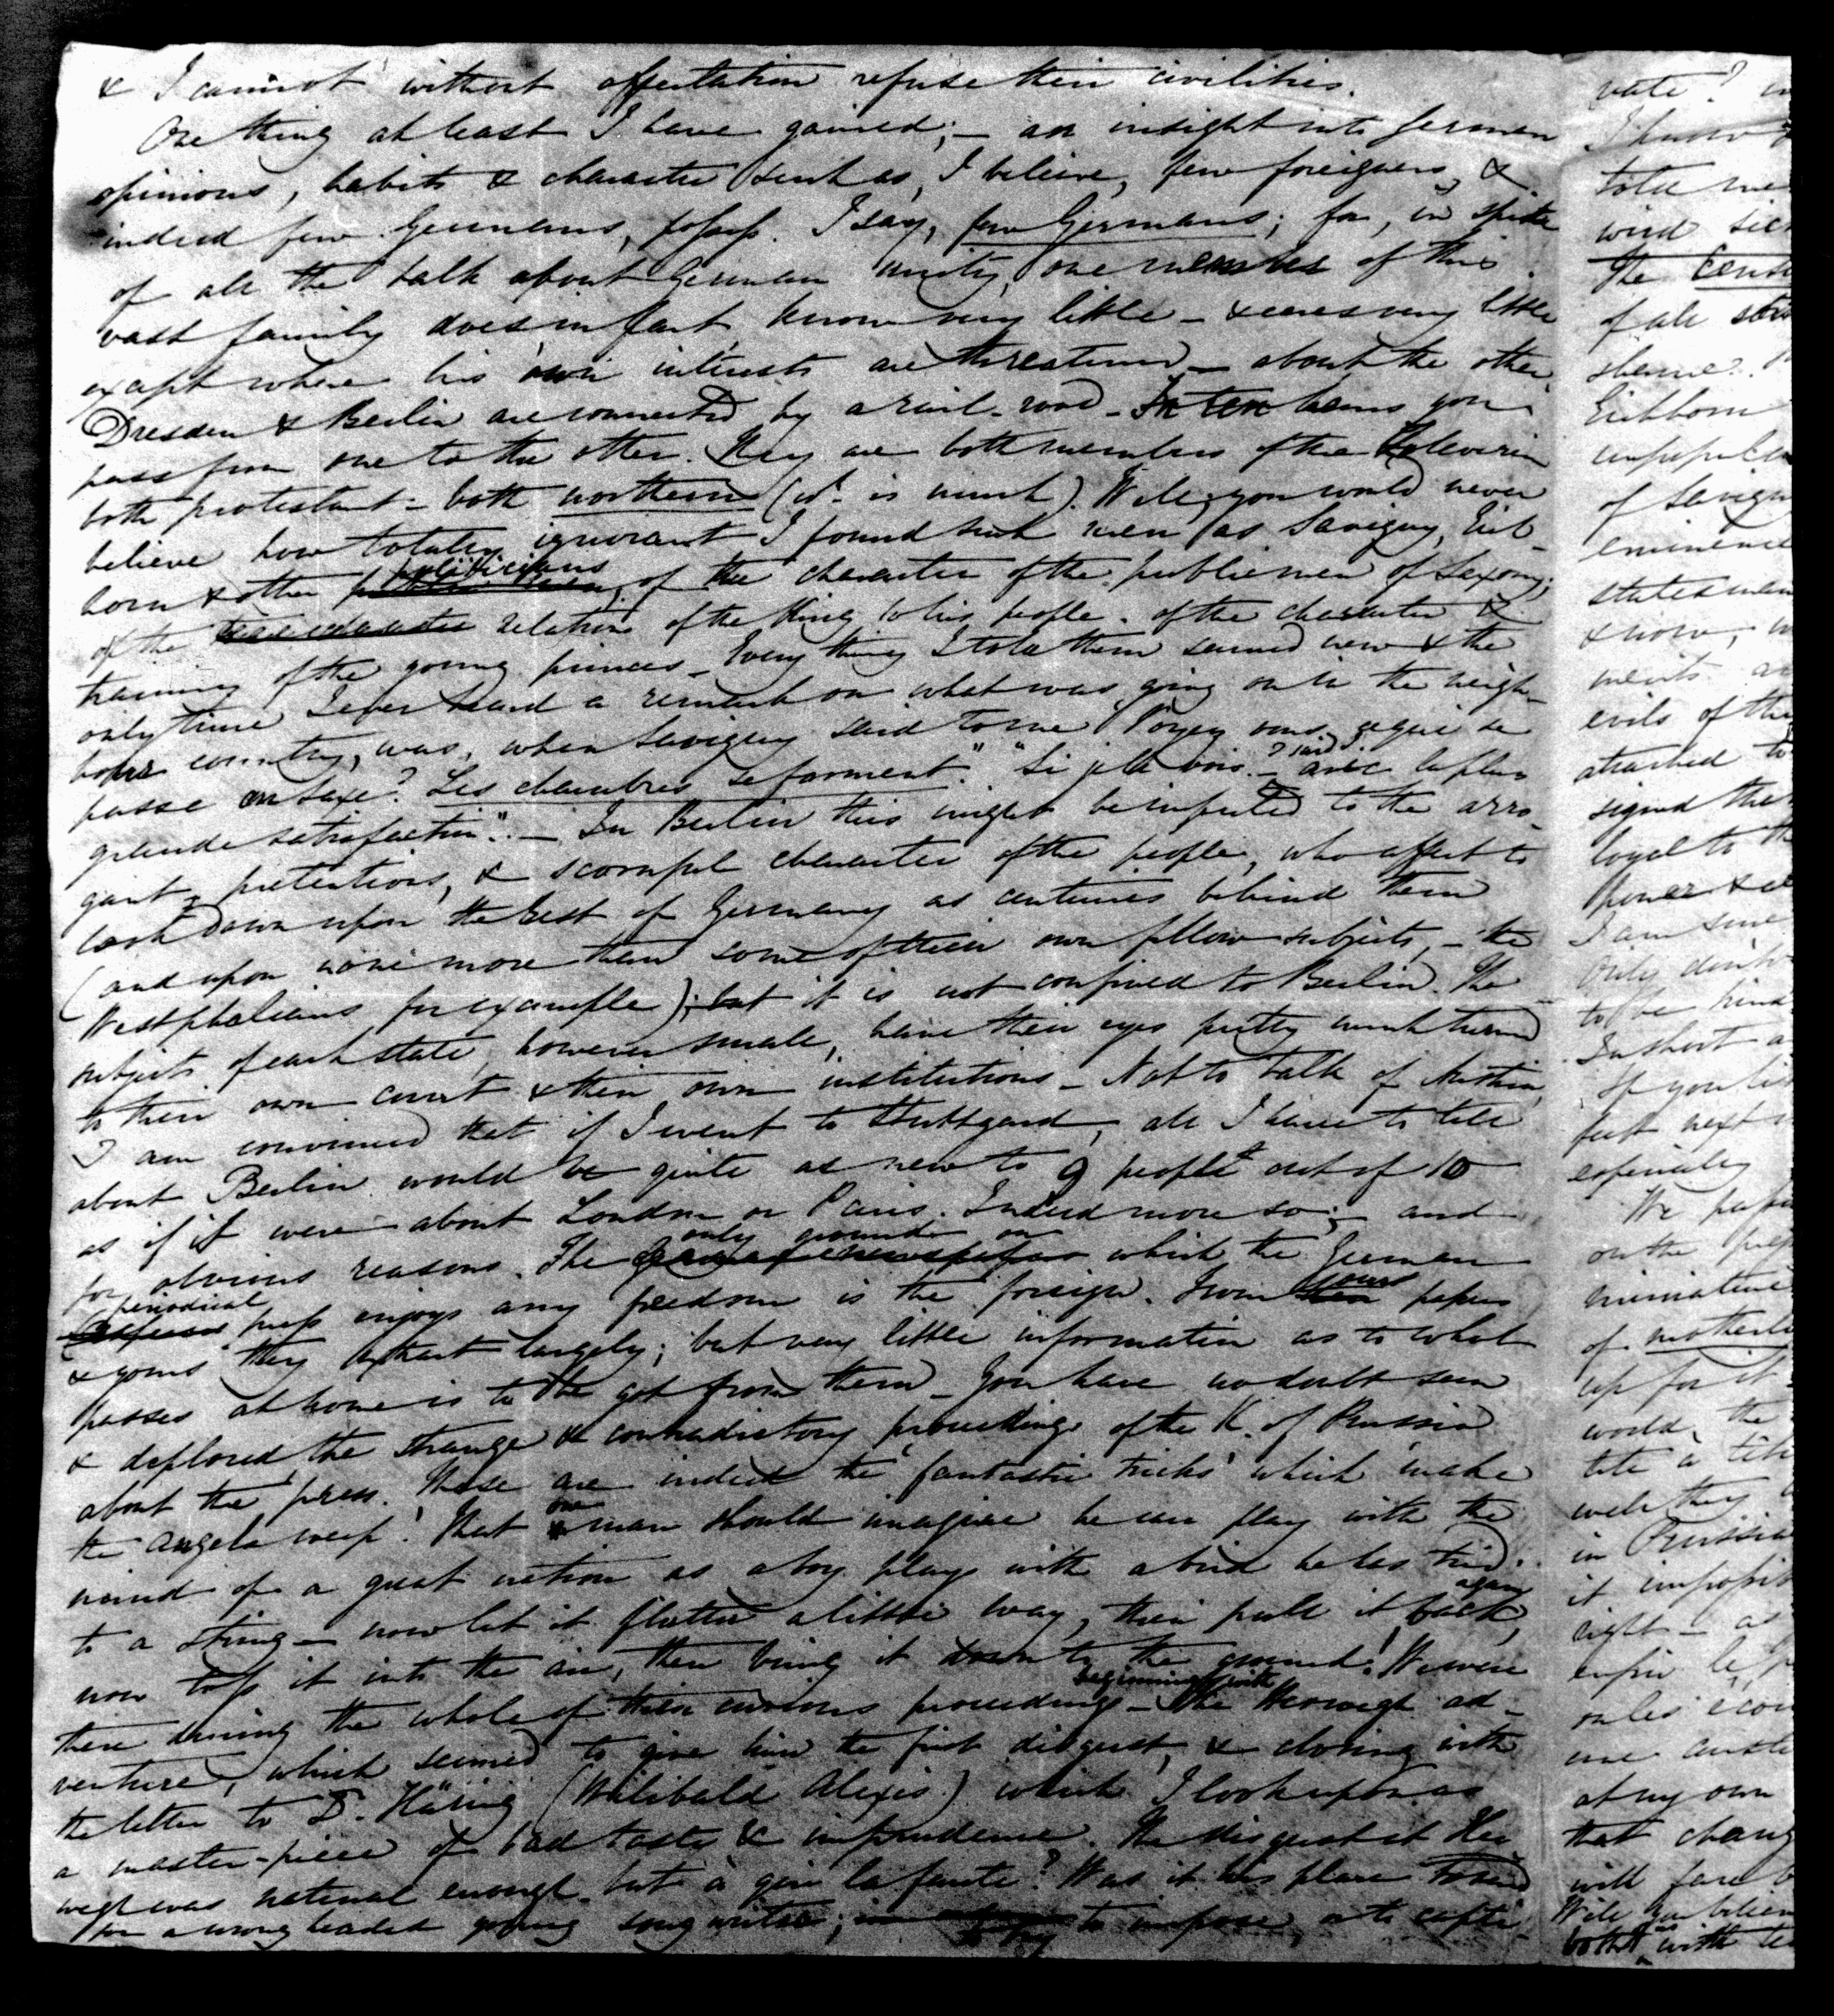 & I cannot without affectation refuse their civilities.
One thing at least I have gained; – an insight into German
opinions, habits & character such as, I believe, few foreigners, &
indeed few Germans, possess. I say, few Germans; for, in spite
of all the talk about German unity, one member of this
vast family does in fact, know very little – & cares very little
except where his own interests are threatened – about the other.
Dresden & Berlin are connected by a rail-road – In ten hours you
pass from one to the other. They are both members of the Zollverein
both protestant – both northern (wh. is much). Well, you would never
believe how totally ignorant I found such men as Savigny, Eich-
horn & other politicians, of the character of the public men of Saxony;
of the relation of the King to his people – of the character &
training of the young princes – Every thing I told them seemed new & the
only time I ever heard a remark on what was going on in the neigh-
bours country, was, when Savigny said to me "Voyez vous ce qui se
passe en Saxe? Les chambres se forment." "Si je le vois – I said, avec la plus
grande satisfaction". – In Berlin this might be imputed to the arro-
gant, pretentious, & scornful character of the people, who affect to
look down upon the rest of Germany as centuries behind them
(and upon none more than some of their own fellow-subjects, – the
Westphalians for example); but it is not confined to Berlin. The
subjects of each state, however small, have their eyes pretty much turned
to their own court & their own institutions – Not to talk of Austria,
I am convinced that if I went to Stuttgard, all I have to tell
about Berlin would be quite as new to 9 people out of 10
as if it were about London or Paris. Indeed more so; – and
for obvious reasons. The only ground on which the German
periodical press enjoys any freedom is the foreign. From our papers
& yours they extract largely; but very little information as to what
passes at home is to be got from them – You have no doubt seen
& deplored the strange & contradictory proceedings of the K. of Prussia
about the press. These are indeed the 'fantastic tricks' which 'make
the angels weep'. That one man should imagine he can play with the
mind of a great nation as a boy plays with a bird he has tied
to a string – now let it flutter a little way, then pull it back again,
now toss it into the air, then bring it down to the ground! We were
there during the whole of these curious proceedings – beginning with the Herwegh ad-
venture, which seemed to give him the first disgust, & closing with
the letter to Dr. Häring (Wilibald Alexis) which I look upon as
a master-piece of bad taste & imprudence. The disgust at Her-
wegh was natural enough – but à qui la faute? Was it his place to send
for a wrong headed young song writer; to try to impose, or to capti-
vate?
I know
told me
wird
The
of all
sheme.
Eichhorn
of Savigny
eminence
statesman
& now,
merits
evils of the
attached to
signed the
loyal to the
power &
I am sure
only
to be
In short
If you
feet next
especially
We
on the
miniature
of
up for it
world, the
tete a tete
well they
in Prussia
it
right – as
enfin le
on les
une
at my own
that
will
Well
both with